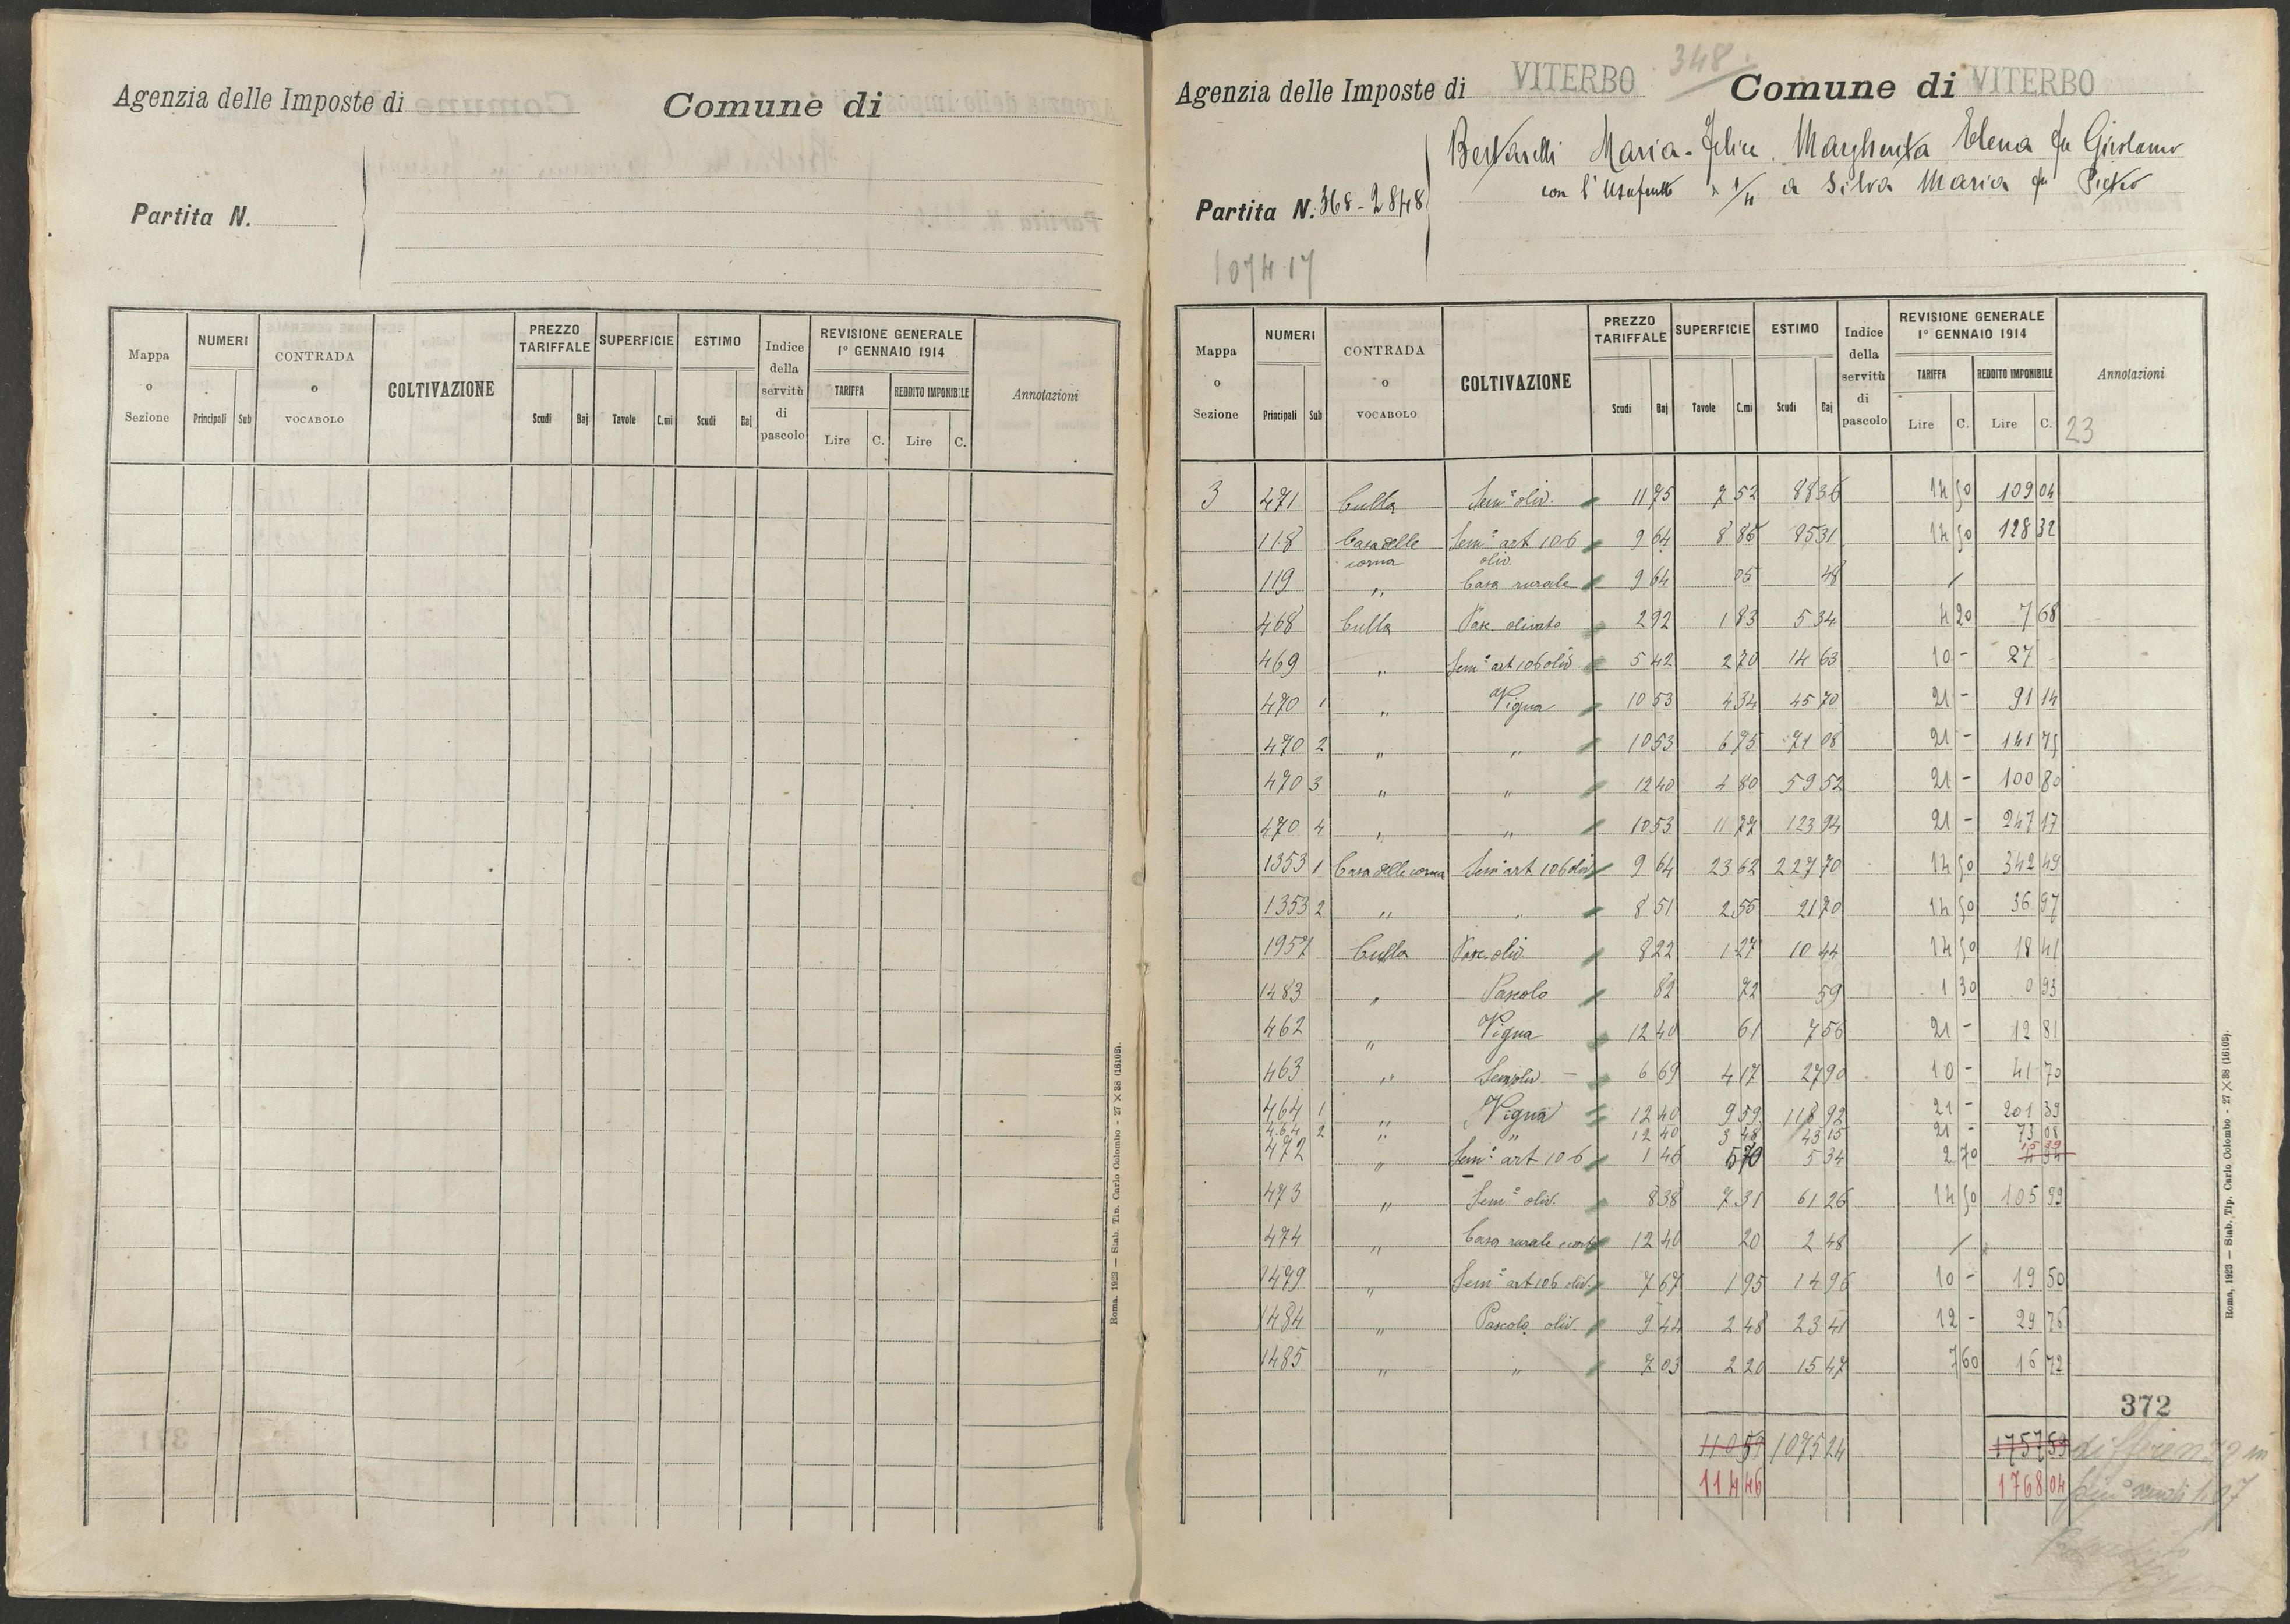 Agenzia delle Imposte di
Comune di
Partita N.
Mappa o Sezione | NUMERI Principali Sub | CONTRADA o VOCABOLO | COLTIVAZIONE | PREZZO TARIFFALE Scudi Baj | SUPERFICIE Tavole C.mi | ESTIMO Scudi Baj | Indice della servitù di pascolo | REVISIONE GENERALE 1º GENNAIO 1914 TARIFFA Lire C. REDDITO IMPONIBILE Lire C. | Annotazioni
Roma, 1923 — Stab. Tip. Carlo Colombo - 27 × 38 (16103).
348
Agenzia delle Imposte di VITERBO Comune di VITERBO
Maria-Felice, Margherita Elena fu Girolamo
con l'Usufrutto a Silva Maria fu Pietro
Partita N. 368-2848
1074 17
Mappa o Sezione | NUMERI Principali Sub | CONTRADA o VOCABOLO | COLTIVAZIONE | PREZZO TARIFFALE Scudi Baj | SUPERFICIE Tavole C.mi | ESTIMO Scudi Baj | Indice della servitù di pascolo | REVISIONE GENERALE 1º GENNAIO 1914 TARIFFA Lire C. REDDITO IMPONIBILE Lire C. | Annotazioni
23
3 471 Culla Semº oliv. 11 75 7 52 88 36 14 50 109 04
118 Casa delle corna Semº art 106 oliv. 9 64 8 85 85 31 14 50 128 32
119 " Casa rurale 9 64 05 48 /
468 Culla Pasc. olivato 2 92 1 83 5 34 4 20 7 68
469 " Semº art 106 oliv. 5 42 2 70 14 63 10 - 27 -
470 1 " Vigna 10 53 4 34 45 70 21 - 91 14
470 2 " " 10 53 6 75 71 08 21 - 141 75
470 3 " " 12 40 4 80 59 52 21 - 100 80
470 4 " " 10 53 11 77 123 94 21 - 247 17
1353 1 Casa delle corna Semº art 106 oliv. 9 64 23 62 227 70 14 50 342 49
1353 2 " " 8 51 2 55 21 70 14 50 36 97
1957 Culla Pasc. oliv. 8 22 1 27 10 44 14 50 18 41
1483 " Pascolo 82 72 59 1 30 0 93
462 " Vigna 12 40 61 7 56 21 - 12 81
463 " Sem oliv. 6 69 4 17 27 90 10 - 41 70
464 1 " Vigna 12 40 9 59 118 92 21 - 201 39
464 2 " " 12 40 3 48 43 15 21 - 73 08
472 " Semº art 106 1 46 5 70 5 34 2 70 15 39
473 " Semº oliv. 8 38 7 31 61 26 14 50 105 99
474 " Casa rurale e corte 12 40 20 2 48 /
1479 " Semº art 106 oliv. 7 67 1 95 14 96 10 - 19 50
1484 " Pascolo oliv. 9 44 2 48 23 41 12 - 29 76
1485 " " 7 03 2 20 15 47 7 60 16 72
372
110 59 1075 24 1757 59 differenza in
114 46 1768 04
Roma, 1923 — Stab. Tip. Carlo Colombo - 27 × 38 (16103).